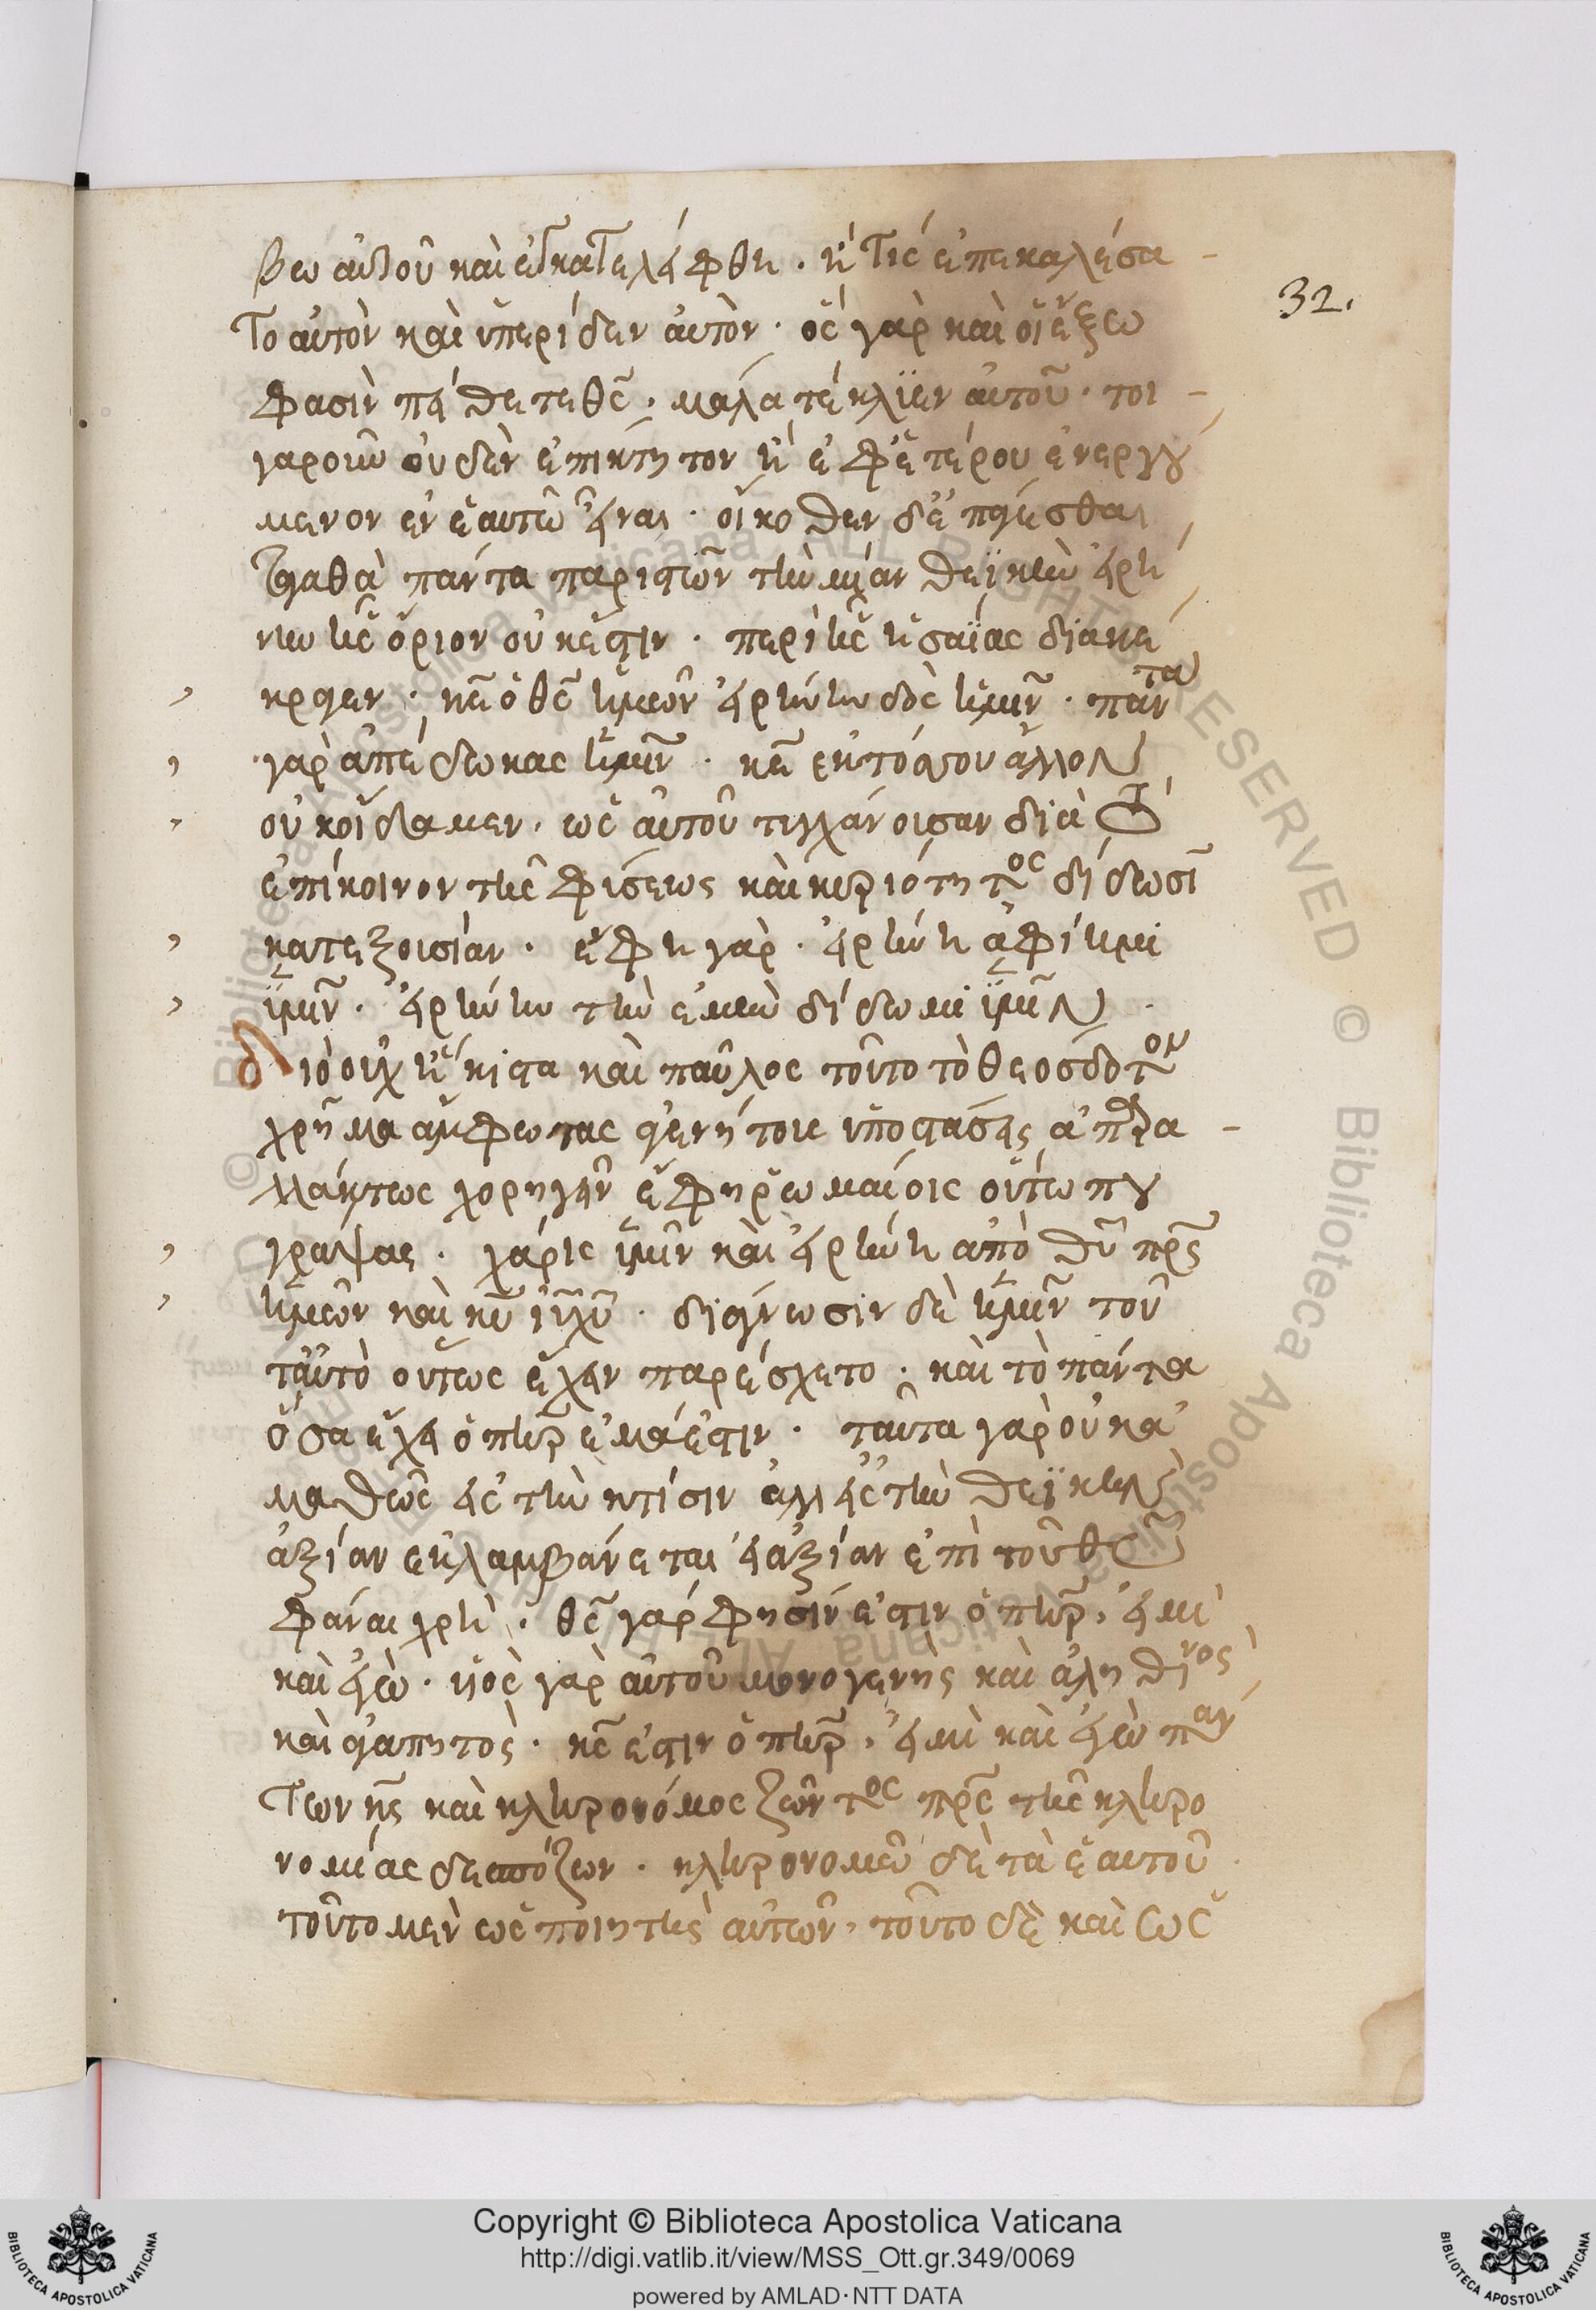 βω αὐτοῦ καὶ ἐγκατελείφθη · ἢ τίς ἐπεκαλέσα-
το αὐτὸν καὶ ὑπερίδεν αὐτόν · ὃς γὰρ καὶ οἱ ἔξω
φασὶν πείθεται θς̅ · μάλα τέκλυεν αὐτοῦ · τοι-
γαροῦν οὐδὲν ἐπίκτητον ἢ ἐφ' ἑτέρου ἐνεργού
μενον ἐν ἑαυτῷ εἶναι · οἴκοθεν δὲ
τἀγαθὰ πάντα παριστῶν τὴν μίαν θεϊκὴν εἰρή
νην ἧς ὅριον οὐκ ἔστιν · περὶ ἧς ἡσαΐας διανέ
κραγεν · κε̅ ὁ θς̅ ἡμῶν εἰρήνην δὸς ἡμῖν · πάντα
γὰρ ἀπέδωκας ἡμῖν · κε̅ ἐκτός σου ἄλλον
οὐκ οἴδαμεν · ὡς αὐτοῦ τυγχάνουσαν διὰ τὸ
ἐπίκοινον τῆς φύσεως καὶ κυριότητος δίδωσι
κατεξουσίαν · ἔφη γάρ · εἰρήνη ἀφίημι
ὑμῖν · εἰρήνην τὴν ἐμὴν δίδωμι ὑμῖν ·
διὸ οὐχ ἥκιστα καὶ παῦλος τοῦτο τὸ θεόσδοτον
χρῆμα ἀμφωτας ἀγενήτοις ὑποστάσεις ἀπαρα-
λλάκτως χορηγεῖν ἔφη ῥωμαίοις οὕτω που
γράψας · χάρις ὑμῖν καὶ εἰρήνη ἀπὸ θυ̅ πρς̅
ἡμῶν καὶ κυ̅ ιυ̅ χυ̅ · διάγνωσιν δὲ ἡμῖν τοῦ
ταυτὸ οὕτως ἔχειν παρέσχετο · καὶ τὸ πάντα
ὅσα ἔχει ὁ πηρ̅ ἐμά ἐστιν · ταῦτα γὰρ οὐ κα
μαθῶς εἰς τὴν κτίσιν ἀλλ' εἰς τὴν θεϊκὴν
ἀξίαν ἐκλαμβάνεται εἰ ἀξίαν ἐπὶ τοῦ θυ̅
φάναι χρή · θς̅ γάρ φησίν ἐστιν ὁ πηρ̅ · εἰμὶ
καὶ ἐγώ · υἱὸς γὰρ αὐτοῦ μονογενὴς καὶ ἀληθινὸς
καὶ ἀγαπητός · κς̅ ἐστιν ὁ πηρ̅ · εἰμὶ καὶ ἐγὼ πάν
των κς̅ καὶ κληρονόμος ζῶντος πρς̅ τῆς κληρο
νομίας δεσπόζων · κληρονομῶ δὲ τὰ ἑαυτοῦ
τοῦτο μὲν ὡς ποιητὴς αὐτῶν · τοῦτο δὲ καὶ ὡς
32.
Copyright © Biblioteca Apostolica Vaticana
http://digi.vatlib.it/view/MSS_Ott.gr.349/0069
powered by AMLAD·NTT DATA